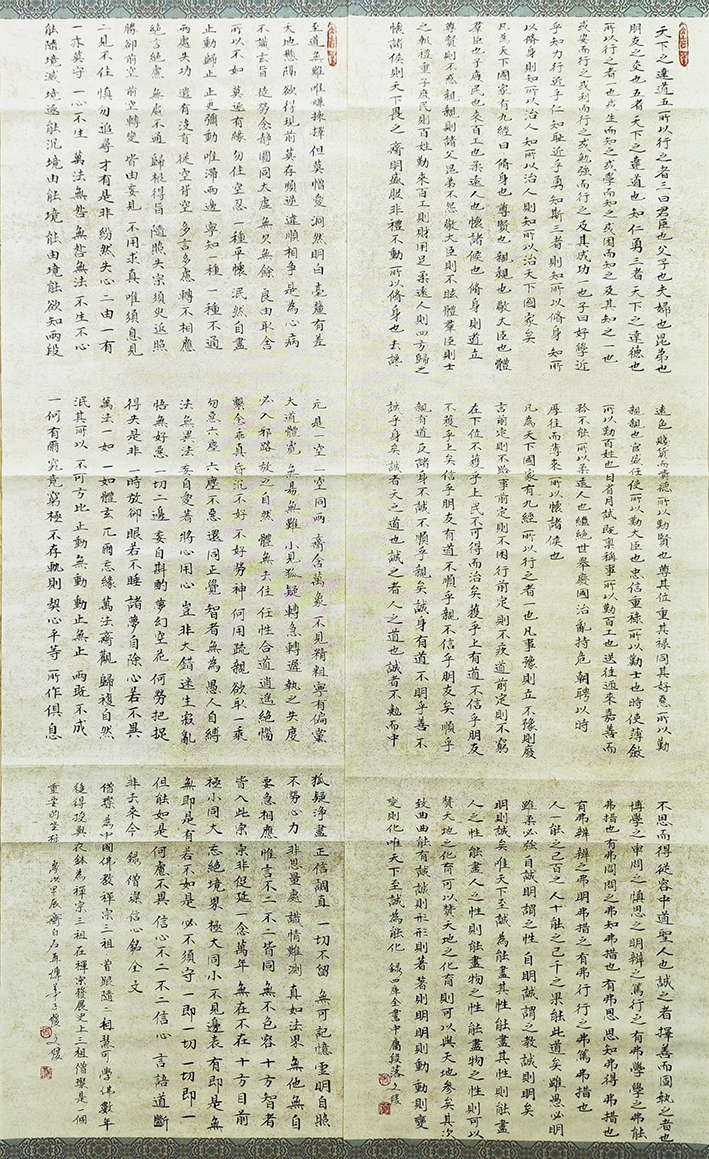 天下之達道五所以行之者三曰君臣也父子也夫婦也昆弟也
朋友之交也五者天下之達道也知仁勇三者天下之達德也
所以行之者一也或生而知之或學而知之或困而知之及其知之一也
或安而行之或利而行之或勉強而行之及其成功一也子曰好學近
乎知力行近乎仁知恥近乎勇知斯三者則知所以脩身知所
以脩身則知所以治人知所以治人則知所以治天下國家矣
凡為天下國家有九經曰脩身也尊賢也親親也敬大臣也體
羣臣也子庶民也來百工也柔遠人也懷諸侯也脩身則道立
尊賢則不惑親親則諸父昆弟不怨敬大臣則不眩體羣臣則士
之報禮重子庶民則百姓勸來百工則財用足柔遠人則四方歸之
懷諸侯則天下畏之齊明盛服非禮不動所以脩身也去讒
遠色賤貨而貴德所以勸賢也尊其位重其祿同其好惡所以勸
親親也官盛任使所以勸大臣也忠信重祿所以勸士也時使薄斂
所以勸百姓也日省月試既稟稱事所以勸百工也送往迎來嘉善而
矜不能所以柔遠人也繼絕世舉廢國治亂持危朝聘以時
厚往而薄來所以懷諸侯也
凡為天下國家有九經所以行之者一也凡事豫則立不豫則廢
言前定則不跲事前定則不困行前定則不疚道前定則不窮
在下位不獲乎上民不可得而治矣獲乎上有道不信乎朋友
不獲乎上矣信乎朋友有道不順乎親不信乎朋友矣順乎
親有道反諸身不誠不順乎親矣誠身有道不明乎善不
誠乎身矣誠者天之道也誠之者人之道也誠者不勉而中
不思而得從容中道聖人也誠之者擇善而固執之者也
博學之審問之慎思之明辨之篤行之有弗學學之弗能
弗措也有弗問問之弗知弗措也有弗思思知弗得弗措也
有弗辨辨之弗明弗措也有弗行行之弗篤弗措也
人一能之己百之人十能之己千之果能此道矣雖愚必明
雖柔必強自誠明謂之性自明誠謂之教誠則明矣
明則誠矣唯天下至誠為能盡其性能盡其性則能盡
人之性能盡人之性則能盡物之性能盡物之性則可以
贊天地之化育可以贊天地之化育則可以與天地參矣其次
致曲曲能有誠誠則形形則著著則明明則動動則變
變則化唯天下至誠為能化 錄四庫全書中庸段落 之媛
至道無難唯嫌揀擇但莫憎愛洞然明白毫釐有差
天地懸隔欲得現前莫存順逆違順相爭是為心病
不識玄旨徒勞念靜圓同太虛無欠無餘良由取舍
所以不如莫逐有緣勿住空忍一種平懷泯然自盡
止動歸止止更彌動唯滯兩邊寧知一種一種不通
兩處失功遣有沒有從空背空多言多慮轉不相應
絕言絕慮無處不通歸根得旨隨照失宗須臾返照
勝卻前空前空轉變皆由妄見不用求真唯須息見
二見不住慎勿追尋才有是非紛然失心二由一有
一亦莫守一心不生萬法無咎無咎無法不生不心
能隨境滅境逐能沉境由能境能由境能欲知兩段
元是一空一空同兩齊含萬象不見精粗寧有偏黨
大道體寬無易無難小見狐疑轉急轉遲執之失度
必入邪路放之自然體無去住任性合道逍遙絕惱
繫念乖真昏沉不好不好勞神何用疏親欲取一乘
勿惡六塵六塵不惡還同正覺智者無為愚人自縛
法無異法妄自愛著將心用心豈非大錯迷生寂亂
悟無好惡一切二邊妄自斟酌夢幻空花何勞把捉
得失是非一時放卻眼若不睡諸夢自除心若不異
萬法一如一如體玄兀爾忘緣萬法齊觀歸複自然
泯其所以不可方比止動無動動止無止兩既不成
一何有爾究竟窮極不存軌則契心平等所作俱息
狐疑淨盡正信調直一切不留無可記憶靈明自照
不勞心力非思量處識情難測真如法界無他無自
要急相應惟言不二不二皆同無不包容十方智者
皆入此宗宗非促延一念萬年無在不在十方目前
極小同大忘絕境界極大同小不見邊表有即是無
無即是有若不如是必不須守一即一切一切即一
但能如是何慮不畢信心不二不二信心言語道斷
非去來今 錄僧璨信心銘全文
僧璨為中國佛教禪宗三祖曾跟隨二祖慧可學佛數年
後得授與衣鉢為禪宗三祖在禪宗發展史上三祖僧璨是一個
重要的坐標 歲次甲辰齊白石再傳弟子 之媛